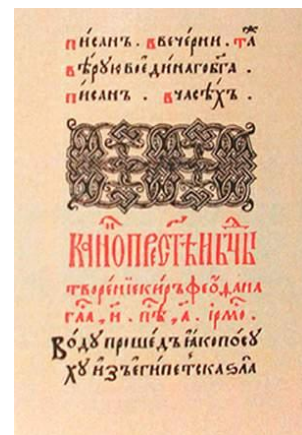 писанъ . ввечерни . та
вѣрую воединаго бг҃а .
писанъ . вчасѣхъ .
канѡⷩ҇ прест҃ѣи бц҃ы
творенїе киръ феѡдана
гла҃ . и҃ . пѣⷭ҇ . а҃ . ірмоⷭ҇ .
Воду прошедъ ꙗко посу
ху изъ египетска ѕла